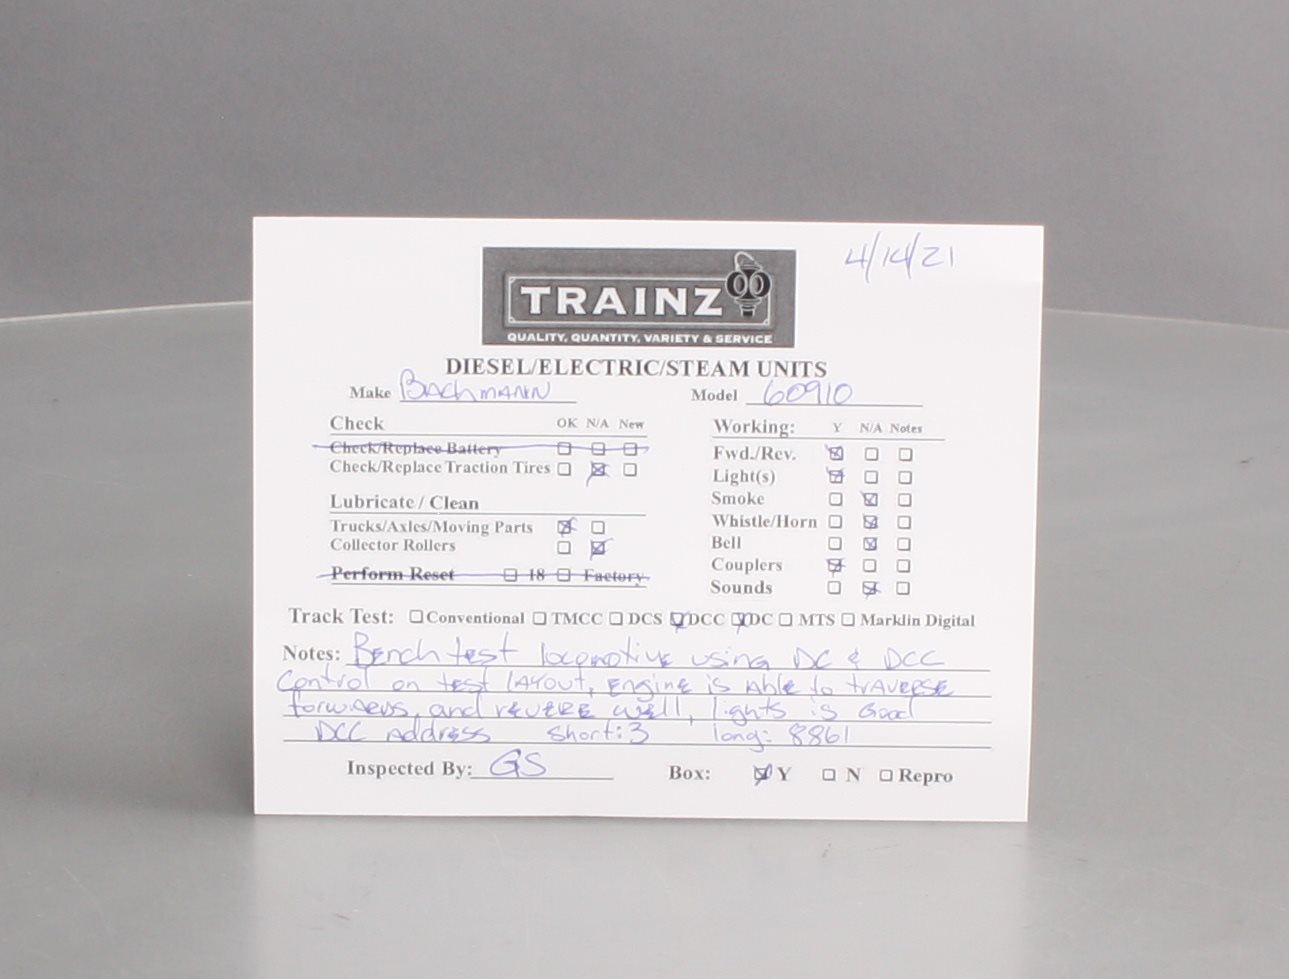 4/14/21
TRAINZ
QUALITY, QUANTITY, VARIETY & SERVICE
DIESEL/ELECTRIC/STEAM UNITS
Make Bachmann Model 60910
Check OK N/A New
Check/Replace Battery
Check/Replace Traction Tires
Lubricate / Clean
Trucks/Axles/Moving Parts
Collector Rollers
Perform Reset 18 Factory
Working: Y N/A Notes
Fwd./Rev.
Light(s)
Smoke
Whistle/Horn
Bell
Couplers
Sounds
Track Test: Conventional TMCC DCS DCC DC MTS Marklin Digital
Notes: Bench test locomotive using DC & DCC
Control on test layout, Engine is able to traverse
forwards, and revere well, lights is Good
DCC Address short: 3 long: 8861
Inspected By: GS Box: Y N Repro